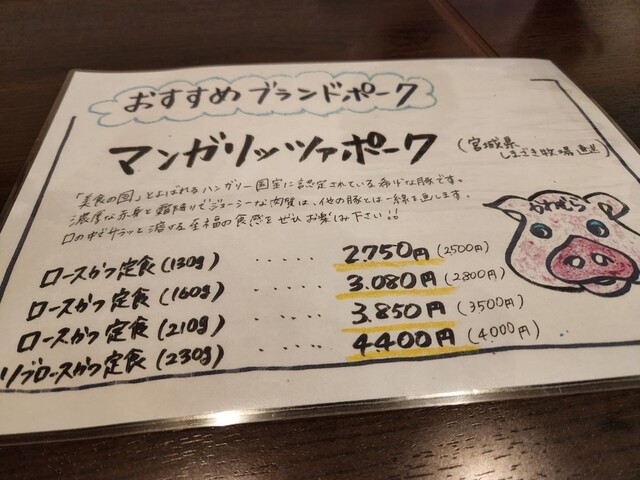 おすすめブランドポーク
マンガリッツァポーク
(宮城県
しまざき牧場直送)
「美食の国」とよばれるハンガリー国宝に認定されている希少な豚です。
濃厚な赤身と霜降りでジューシーな肉質は、他の豚とは一線を画します。
口の中でサラッと溶ける至福の食感をぜひお楽しみ下さい!!
ロースかつ定食(130g) ・・・・・ 2.750円(2500円)
ロースかつ定食(160g) ・・・・・ 3.080円(2800円)
ロースかつ定食(210g) ・・・・・ 3.850円(3500円)
リブロースかつ定食(230g) ・・・・・ 4400円(4000円)